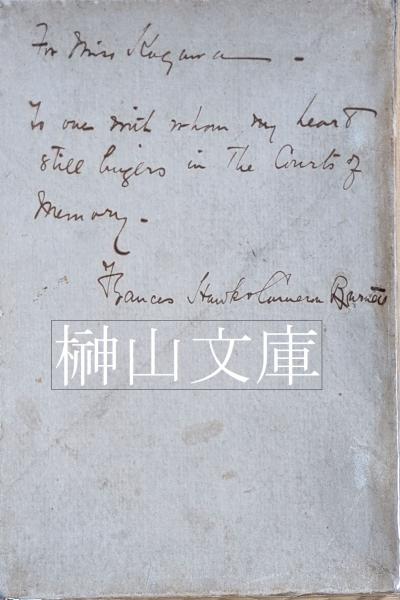 For Miss Kagawa —.
To one with whom my heart
still lingers in The Courts of
Memory.
Frances Hawks Cameron Burnett
榊山文庫